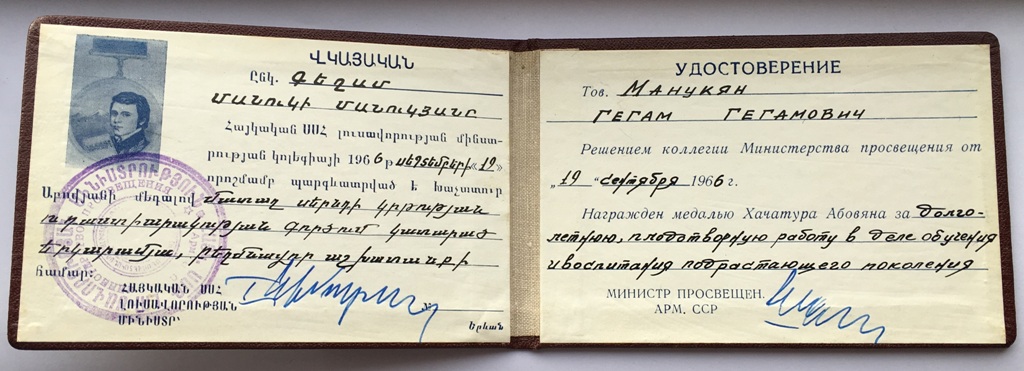 ՎԿԱՅԱԿԱՆ
Ընկ. Գեղամ
Մանուկի Մանուկյանը
Հայկական ՍՍՀ լուսավորության մինիստ-
րության կոլեգիայի 1966 թ սեպտեմբերի «19»
որոշմամբ պարգևատրված է Խաչատուր
Աբովյանի մեդալով մատաղ սերնդի կրթության
և դաստիարակության գործում կատարած
երկարամյա, բեղմնավոր աշխատանքի
համար:
ՀԱՅԿԱԿԱՆ ՍՍՀ
ԼՈՒՍԱՎՈՐՈՒԹՅԱՆ
ՄԻՆԻՍՏՐ
№
Երևան
УДОСТОВЕРЕНИЕ
Тов. Манукян
Гегам Гегамович
Решением коллегии Министерства просвещения от
„19 “ сентября 1966 г.
Награжден медалью Хачатура Абовяна за долго-
летнюю, плодотворную работу в деле обучения
и воспитания подрастающего поколения
МИНИСТР ПРОСВЕЩЕН.
АРМ. ССР